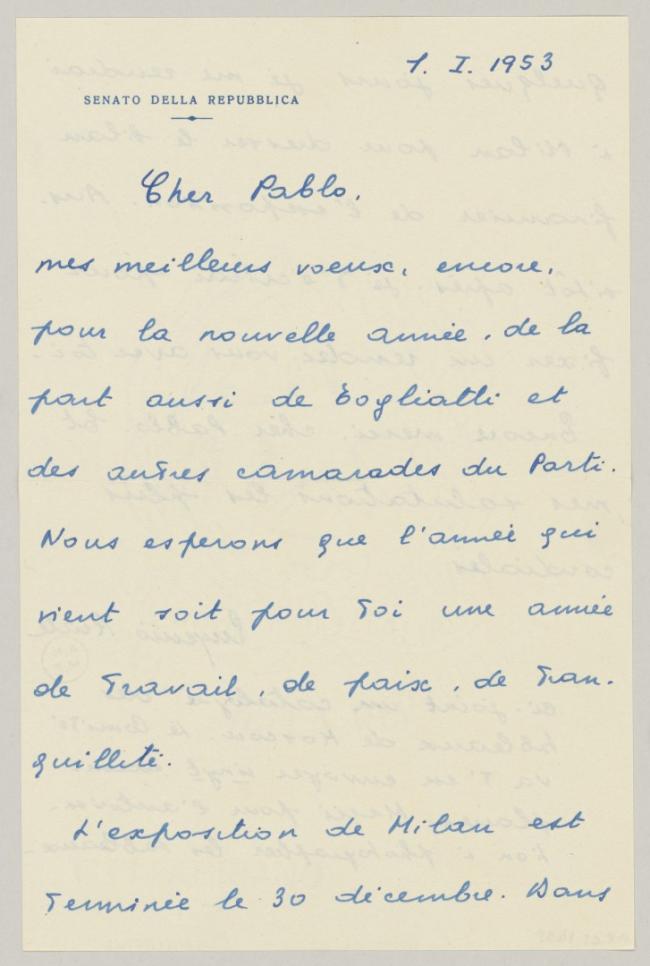 1. I. 1953
SENATO DELLA REPUBBLICA
Cher Pablo,
mes meilleurs voeux, encore,
pour la nouvelle année, de la
part aussi de Togliatti et
des autres camarades du Parti.
Nous esperons que l'année qui
vient soit pour Toi une année
de Travail, de paix, de Tran-
quillité.
L'exposition de Milan est
Terminée le 30 décembre. Dans